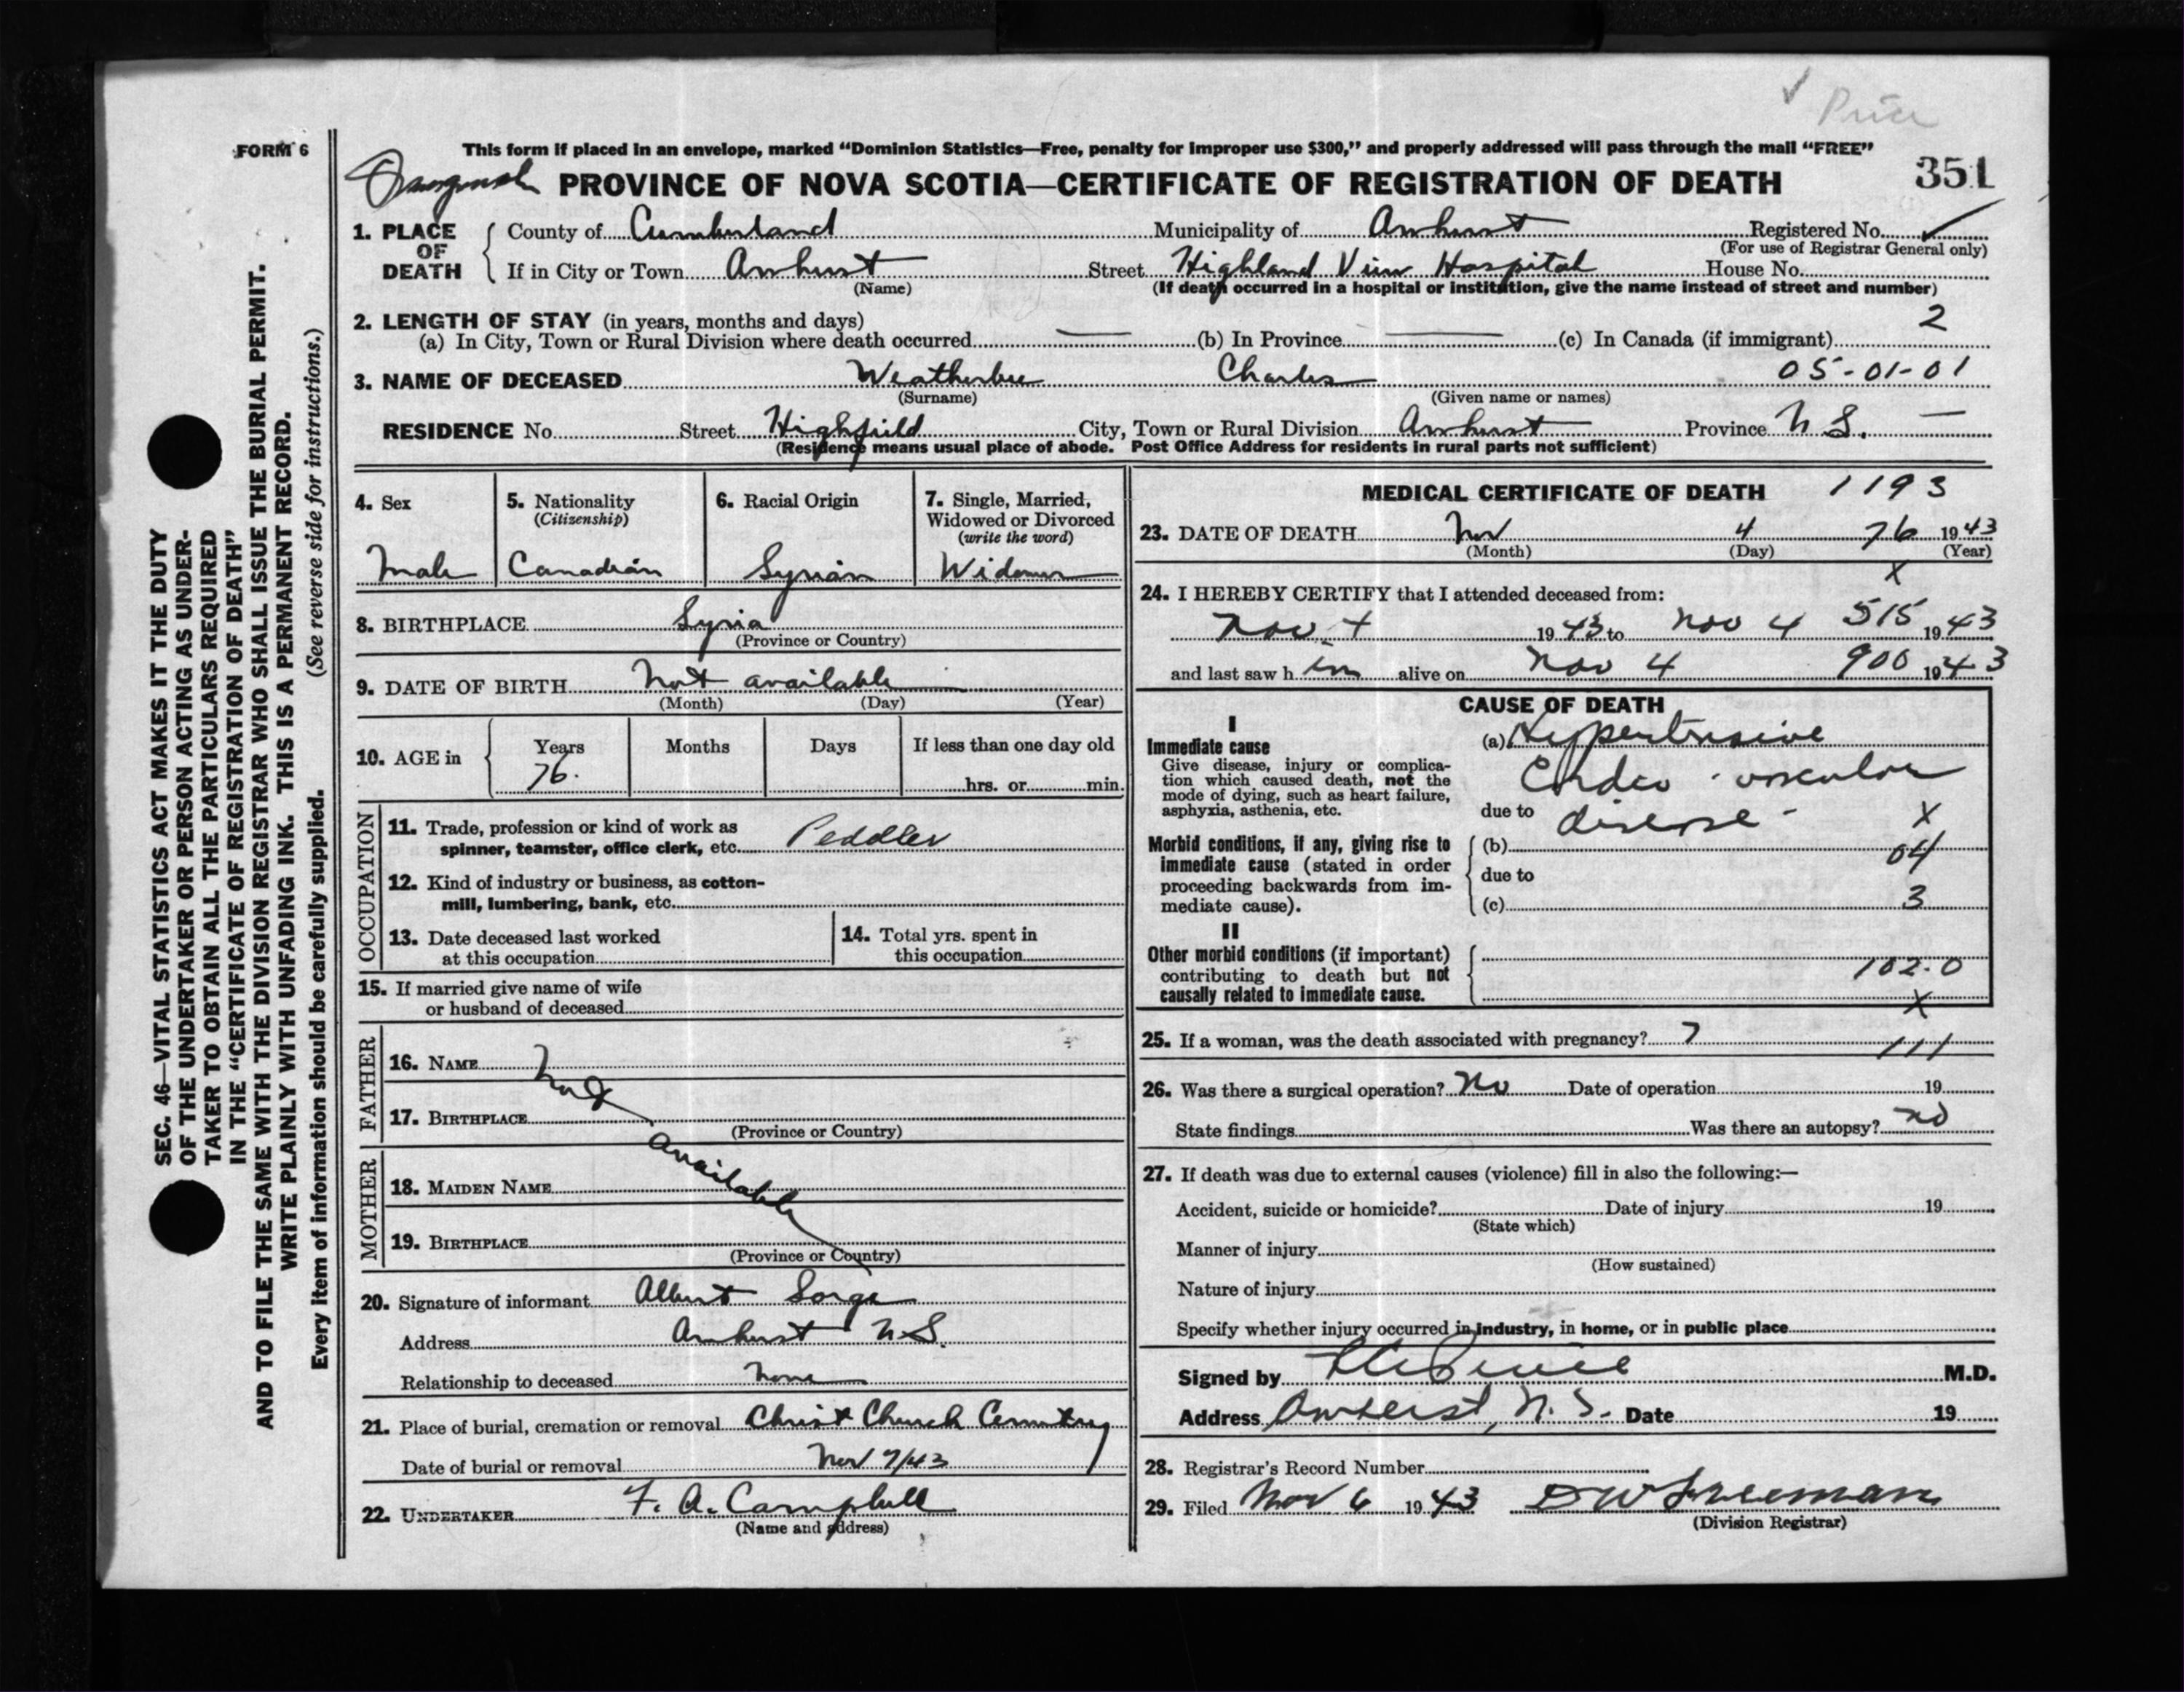 ✓ Price
FORM 6
This form if placed in an envelope, marked “Dominion Statistics—Free, penalty for improper use $300,” and properly addressed will pass through the mail “FREE”
PROVINCE OF NOVA SCOTIA—CERTIFICATE OF REGISTRATION OF DEATH 351
1. PLACE OF DEATH
County of Cumberland Municipality of Amherst Registered No. ✓
(For use of Registrar General only)
If in City or Town Amherst Street Highland View Hospital House No.
(Name) (If death occurred in a hospital or institution, give the name instead of street and number)
2. LENGTH OF STAY (in years, months and days) 2
(a) In City, Town or Rural Division where death occurred — (b) In Province — (c) In Canada (if immigrant)
3. NAME OF DECEASED Weatherbee Charles 05-01-01
(Surname) (Given name or names)
RESIDENCE No. Street Highfield City, Town or Rural Division Amherst Province N S. —
(Residence means usual place of abode. Post Office Address for residents in rural parts not sufficient)
4. Sex
Male
5. Nationality
(Citizenship)
Canadian
6. Racial Origin
Syrian
7. Single, Married,
Widowed or Divorced
(write the word)
Widower
8. BIRTHPLACE Syria
(Province or Country)
9. DATE OF BIRTH Not available
(Month) (Day) (Year)
10. AGE in
Years Months Days If less than one day old
76. hrs. or min.
OCCUPATION
11. Trade, profession or kind of work as
spinner, teamster, office clerk, etc. Peddler
12. Kind of industry or business, as cotton-
mill, lumbering, bank, etc.
13. Date deceased last worked
at this occupation
14. Total yrs. spent in
this occupation
15. If married give name of wife
or husband of deceased
FATHER
16. NAME Not
17. BIRTHPLACE
(Province or Country)
available
MOTHER
18. MAIDEN NAME
19. BIRTHPLACE
(Province or Country)
20. Signature of informant Albert Sorge
Address Amherst N S.
Relationship to deceased None
21. Place of burial, cremation or removal Christ Church Cemetery
Date of burial or removal Nov 7/43
22. UNDERTAKER F. A. Campbell
(Name and address)
MEDICAL CERTIFICATE OF DEATH 1193
23. DATE OF DEATH Nov 4 76 1943
(Month) (Day) (Year)
X
24. I HEREBY CERTIFY that I attended deceased from:
Nov. 4 1943 to Nov 4 515 1943
and last saw h im alive on Nov 4 900 1943
CAUSE OF DEATH
I
Immediate cause
Give disease, injury or complica-
tion which caused death, not the
mode of dying, such as heart failure,
asphyxia, asthenia, etc.
(a) Hypertensive
Cardio-vascular
due to disease - X
Morbid conditions, if any, giving rise to
immediate cause (stated in order
proceeding backwards from im-
mediate cause).
(b) 04
due to
(c) 3
II
Other morbid conditions (if important)
contributing to death but not
causally related to immediate cause.
102.0
X
25. If a woman, was the death associated with pregnancy? 7 111
26. Was there a surgical operation? No Date of operation 19
State findings Was there an autopsy? no
27. If death was due to external causes (violence) fill in also the following:—
Accident, suicide or homicide? Date of injury 19
(State which)
Manner of injury
(How sustained)
Nature of injury
Specify whether injury occurred in industry, in home, or in public place
Signed by Price M.D.
Address Amherst, N. S. Date 19
28. Registrar's Record Number
29. Filed Nov 6 1943 D W Freeman
(Division Registrar)
SEC. 46—VITAL STATISTICS ACT MAKES IT THE DUTY
OF THE UNDERTAKER OR PERSON ACTING AS UNDER-
TAKER TO OBTAIN ALL THE PARTICULARS REQUIRED
IN THE “CERTIFICATE OF REGISTRATION OF DEATH”
AND TO FILE THE SAME WITH THE DIVISION REGISTRAR WHO SHALL ISSUE THE BURIAL PERMIT.
WRITE PLAINLY WITH UNFADING INK. THIS IS A PERMANENT RECORD.
Every item of information should be carefully supplied. (See reverse side for instructions.)